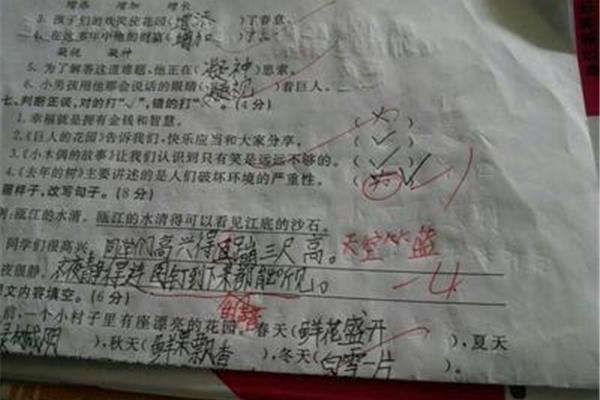 增添 增加 增长
3. 孩子们的欢笑使花园(增添)了春意。
凝视 凝神
5. 为了解答这道难题,他正在(凝神)思索。
6. 小男孩用他那会说话的眼睛(凝视)着巨人。
七、判断正误,对的打“√”,错的打“×”。(4分)
1. 幸福就是拥有金钱和智慧。(×)
2.《巨人的花园》告诉我们,快乐应当和大家分享。(√)
3.《小木偶的故事》让我们认识到只有笑是远远不够的。(√)
4.《去年的树》主要讲述的是人们破坏环境的严重性。
照样子,改写句子。(8分)
例:瓯江的水清。瓯江的水清得可以看见江底的沙石。
同学们很高兴。同学们高兴得 蹦三尺高。
夜很静。 夜静得连图钉到下来都能听见。
-4
课文内容填空。(6分)
前,一个小村子里有座漂亮的花园。春天(鲜花盛开),夏天
),秋天(鲜果飘香),冬天(白雪一片